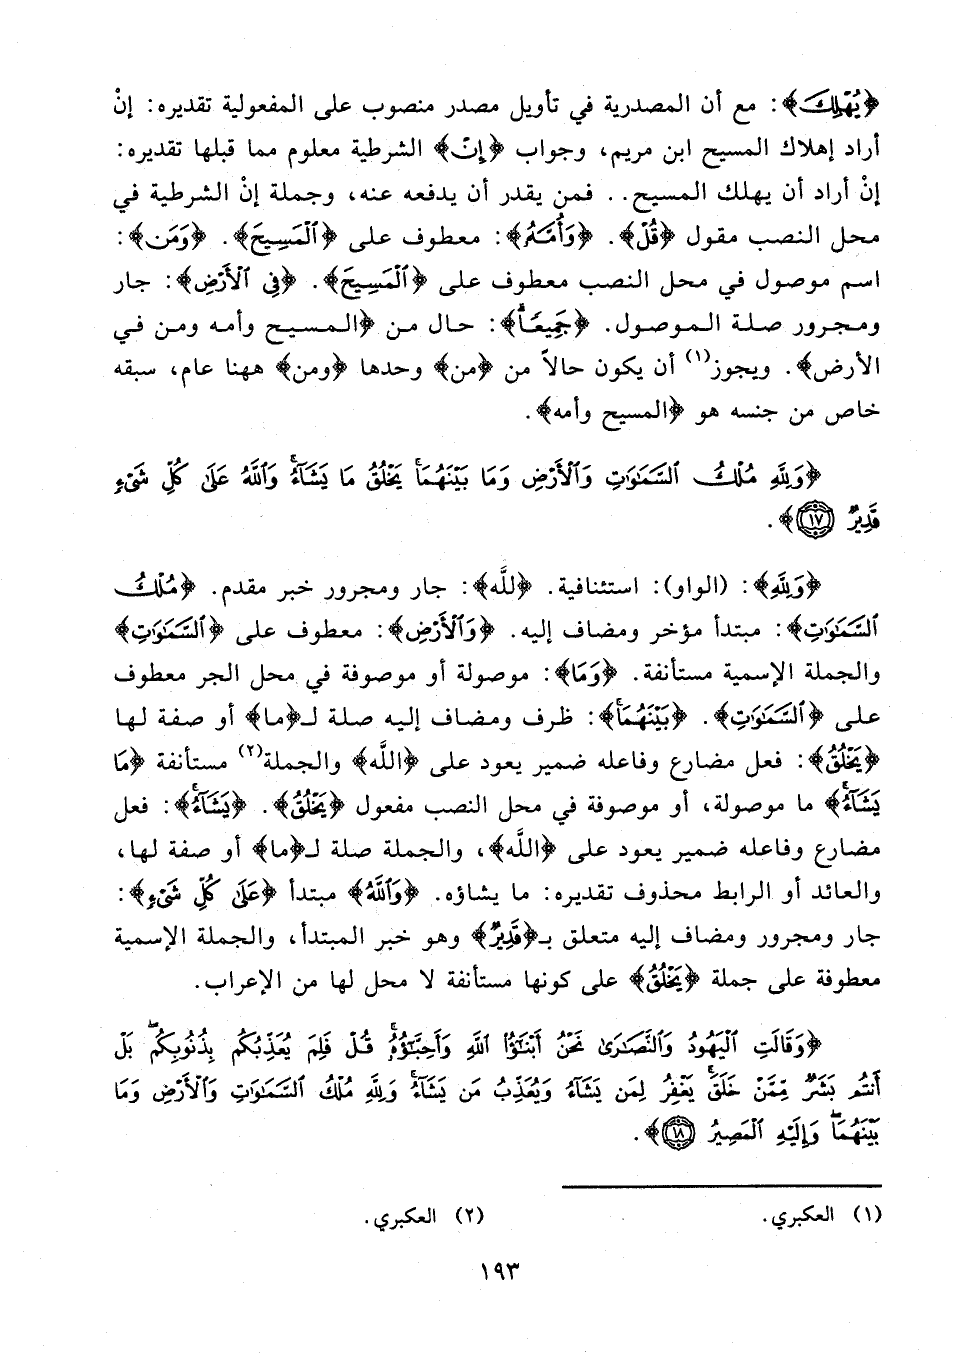 ﴿يُهْلِكَ﴾: مع أن المصدرية في تأويل مصدر منصوب على المفعولية تقديره: إنْ
أراد إهلاك المسيح ابن مريم، وجواب ﴿إِنْ﴾ الشرطية معلوم مما قبلها تقديره:
إنْ أراد أن يهلك المسيح.. فمن يقدر أن يدفعه عنه، وجملة إنْ الشرطية في
محل النصب مقول ﴿قُلْ﴾. ﴿وَأُمَّهُ﴾: معطوف على ﴿الْمَسِيحَ﴾. ﴿وَمَن﴾:
اسم موصول في محل النصب معطوف على ﴿الْمَسِيحَ﴾. ﴿فِي الْأَرْضِ﴾: جار
ومجرور صلة الموصول. ﴿جَمِيعًا﴾: حال من ﴿المسيح وأمه ومن في
الأرض﴾. ويجوز(١) أن يكون حالاً من ﴿من﴾ وحدها ﴿ومن﴾ ههنا عام، سبقه
خاص من جنسه هو ﴿المسيح وأمه﴾.
﴿وَلِلَّهِ مُلْكُ السَّمَاوَاتِ وَالْأَرْضِ وَمَا بَيْنَهُمَا ۚ يَخْلُقُ مَا يَشَاءُ ۚ وَاللَّهُ عَلَىٰ كُلِّ شَيْءٍ
قَدِيرٌ ١٧﴾.
﴿وَلِلَّهِ﴾: (الواو): استئنافية. ﴿للَّه﴾: جار ومجرور خبر مقدم. ﴿مُلْكُ
السَّمَاوَاتِ﴾: مبتدأ مؤخر ومضاف إليه. ﴿وَالْأَرْضِ﴾: معطوف على ﴿السَّمَاوَاتِ﴾
والجملة الإسمية مستأنفة. ﴿وَمَا﴾: موصولة أو موصوفة في محل الجر معطوف
على ﴿السَّمَاوَاتِ﴾. ﴿بَيْنَهُمَا ۚ﴾: ظرف ومضاف إليه صلة لـ﴿ما﴾ أو صفة لها
﴿يَخْلُقُ﴾: فعل مضارع وفاعله ضمير يعود على ﴿اللَّه﴾ والجملة(٢) مستأنفة ﴿مَا
يَشَاءُ ۚ﴾ ما موصولة، أو موصوفة في محل النصب مفعول ﴿يَخْلُقُ﴾. ﴿يَشَاءُ ۚ﴾: فعل
مضارع وفاعله ضمير يعود على ﴿اللَّه﴾، والجملة صلة لـ﴿ما﴾ أو صفة لها،
والعائد أو الرابط محذوف تقديره: ما يشاؤه. ﴿وَاللَّهُ﴾ مبتدأ ﴿عَلَىٰ كُلِّ شَيْءٍ﴾:
جار ومجرور ومضاف إليه متعلق بـ﴿قَدِيرٌ﴾ وهو خبر المبتدأ، والجملة الإسمية
معطوفة على جملة ﴿يَخْلُقُ﴾ على كونها مستأنفة لا محل لها من الإعراب.
﴿وَقَالَتِ الْيَهُودُ وَالنَّصَارَىٰ نَحْنُ أَبْنَاءُ اللَّهِ وَأَحِبَّاؤُهُ ۚ قُلْ فَلِمَ يُعَذِّبُكُم بِذُنُوبِكُم ۖ بَلْ
أَنتُم بَشَرٌ مِّمَّنْ خَلَقَ ۚ يَغْفِرُ لِمَن يَشَاءُ وَيُعَذِّبُ مَن يَشَاءُ ۚ وَلِلَّهِ مُلْكُ السَّمَاوَاتِ وَالْأَرْضِ وَمَا
بَيْنَهُمَا ۖ وَإِلَيْهِ الْمَصِيرُ ١٨﴾.
(١) العكبري.
(٢) العكبري.
١٩٣